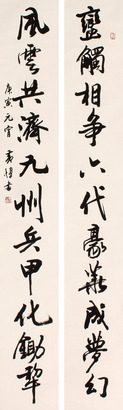 蛮觸相争六代豪華成夢幻
風雲共濟九州兵甲化鋤犂
庚寅元宵